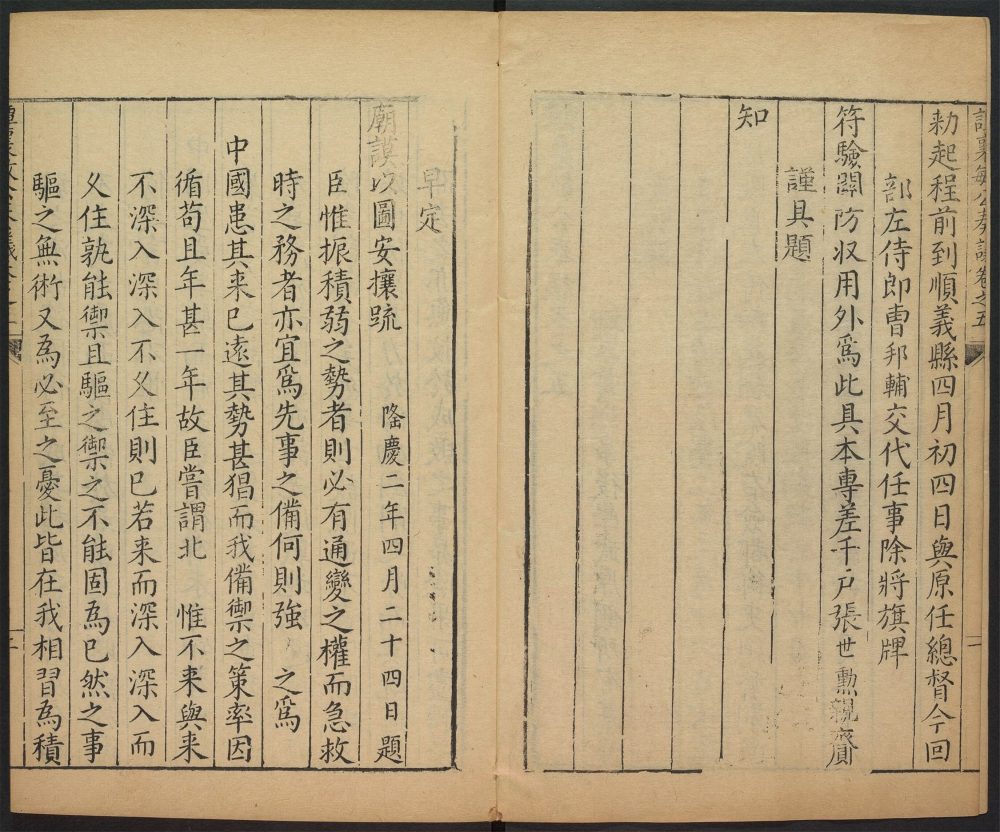 譚襄敏公奏議卷之五
二
勑起程前到順義縣四月初四日與原任總督今回
部左侍郎曹邦輔交代任事除將旗牌
符驗關防収用外爲此具本專差千户張世勲親齎
謹具題
知
早定
廟謨以圖安攘䟽 隆慶二年四月二十四日題
臣惟振積弱之勢者則必有通變之權而急救
時之務者亦宜爲先事之備何則強 之爲
中國患其来已遠其勢甚猖而我備禦之策率因
循苟且年甚一年故臣嘗謂北 惟不来與来
不深入深入不乆住則已若来而深入深入而
乆住孰能禦且驅之禦之不能固為已然之事
驅之無術又為必至之憂此皆在我相習為積